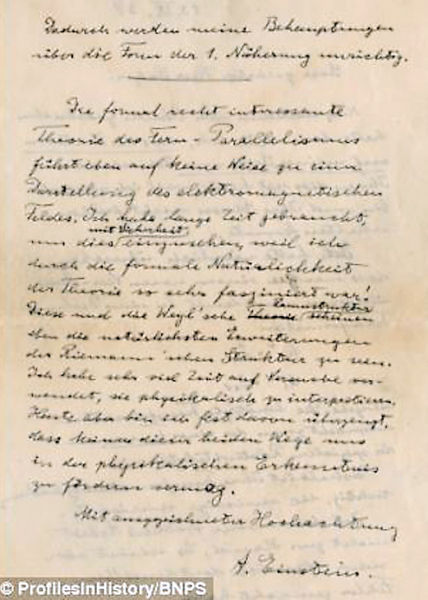 Dadurch werden meine Behauptungen
über die Form der 1. Näherung unrichtig.
Die formal recht interessante
Theorie des Fern-Parallelismus
führt eben auf keine Weise zu einer
Darstellung des elektromagnetischen
Feldes. Ich habe lange Zeit gebraucht,
mit Sicherheit
um dies einzusehen, weil ich
durch die formale Natürlichkeit
der Theorie so sehr fasziniert war!
Raumstruktur
Diese und die Weyl'sche Theorie scheinen
eben die natürlichsten Erweiterungen
der Riemann'schen Struktur zu sein.
Ich habe sehr viel Zeit auf Versuche ver-
wendet, sie physikalisch zu interpretieren.
Heute aber bin ich fest davon überzeugt,
dass keiner dieser beiden Wege uns
in der physikalischen Erkenntnis
zu fördern vermag.
Mit ausgezeichneter Hochachtung
A. Einstein.
© ProfilesInHistory/BNPS